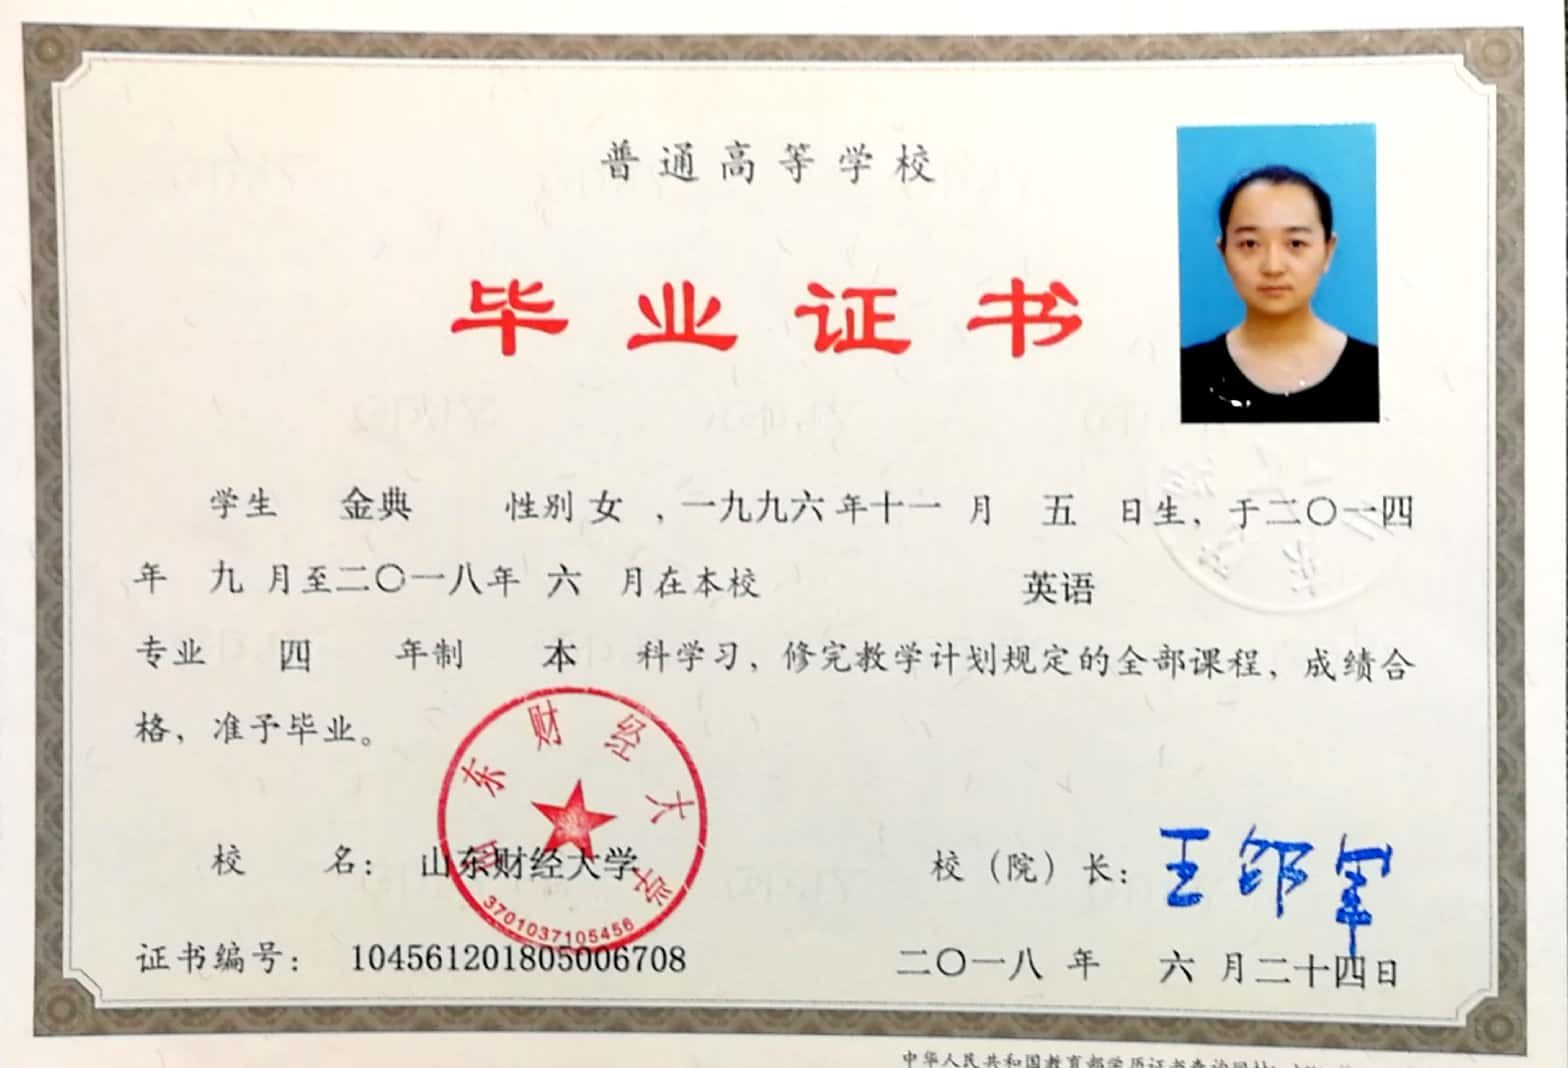 普通高等学校
毕业证书
学生 金典 性别 女 ，一九九六 年 十一 月 五 日生，于二〇一四
年 九 月至二〇一八年 六 月在本校 英语
专业 四 年制 本 科学习，修完教学计划规定的全部课程，成绩合
格，准予毕业。
山东财经大学
3701037105456
校 名： 山东财经大学 校（院）长： 王邵军
证书编号： 104561201805006708 二〇一八 年 六 月二十四日
中华人民共和国教育部学历证书查询网址